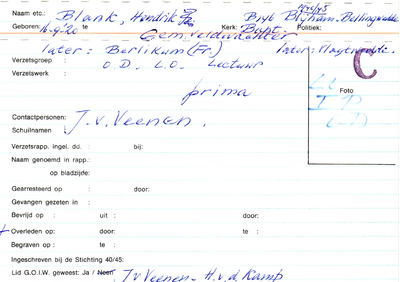 Naam etc.: Blank, Hendrik
Geboren: 16-9-'20 te Kerk: Politiek:
Gem. veldwachter
later: Berlikum (Fr.) later:
Verzetsgroep : O.D. L.O. Lectuur
Verzetswerk :
prima
C
Foto
Contactpersonen: J. v. Veenen.
Schuilnamen
Verzetsrapp. ingel. dd. : bij:
Naam genoemd in rapp.:
op bladzijde:
Gearresteerd op : door:
Gevangen gezeten in :
Bevrijd op : uit : door:
+ Overleden op: door: te :
Begraven op : te :
Ingeschreven bij de Stichting 40/45:
Lid G.O.I.W. geweest: Ja / Neen J v Veenen - H. v. d. Kamp